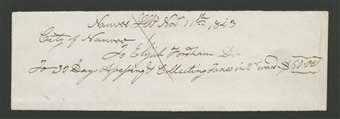 Nauvoo Ills Nov 11th 1843
City of Nauvoo
To Elijah Fordham Dr
To 30 Days Assessing & Collecting Taxes in 2d ward $60.00